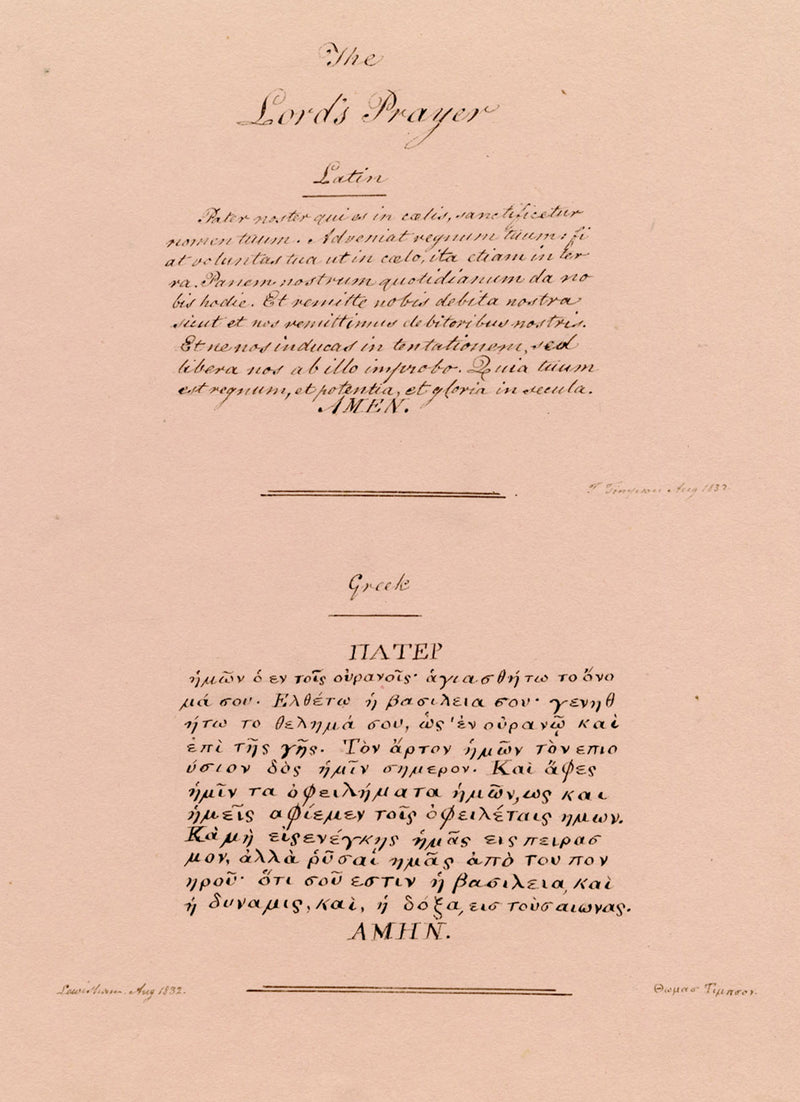 The
Lord's Prayer
Latin
Pater noster qui es in cœlis, sanctificetur
nomen tuum. Adveniat regnum tuum: fi
at voluntas tua ut in cœlo, ita etiam in ter
ra. Panem nostrum quotidianum da no
bis hodie. Et remitte nobis debita nostra
sicut et nos remittimus debitoribus nostris.
Et ne nos inducas in tentationem, sed
libera nos ab illo improbo. Quia tuum
est regnum, et potentia, et gloria in secula.
AMEN.
T Timpson Aug 1832
Greek
ΠΑΤΕΡ
ἡμῶν ὁ εν τοῖς οὐρανοῖς· ἁγιασθήτω το ὄνο
μά σου. Ελθέτω ἡ βασιλεια σου· γενηθ
ήτω το θελημά σου, ὡς 'έν οὐρανῷ καὶ
ἐπὶ τῆς γῆς. Τὸν ἄρτον ἡμῶν τὸν επιο
ύσιον δὸς ἡμῖν σημερον. Καὶ ἄφες
ἡμῖν τα ὀφειλήματα ἡμῶν, ως και
ἡμεῖς αφίεμεν τοῖς ὀφειλέταις ημων.
Κὰ μὴ εἰςενέγκης ἡμᾶς εις πειρασ
μον, ἀλλὰ ῥῦσαί ημᾶς ἀπὸ του πον
ηροῦ· ὅτι σοῦ εστιν ἡ βασιλεια, καὶ
ἡ δυναμις, καὶ, ἡ δόξα, εισ τοὺσ αιωνας.
ΑΜΗΝ.
Lewisham Aug 1832.
Θωμασ Τιμπσον.